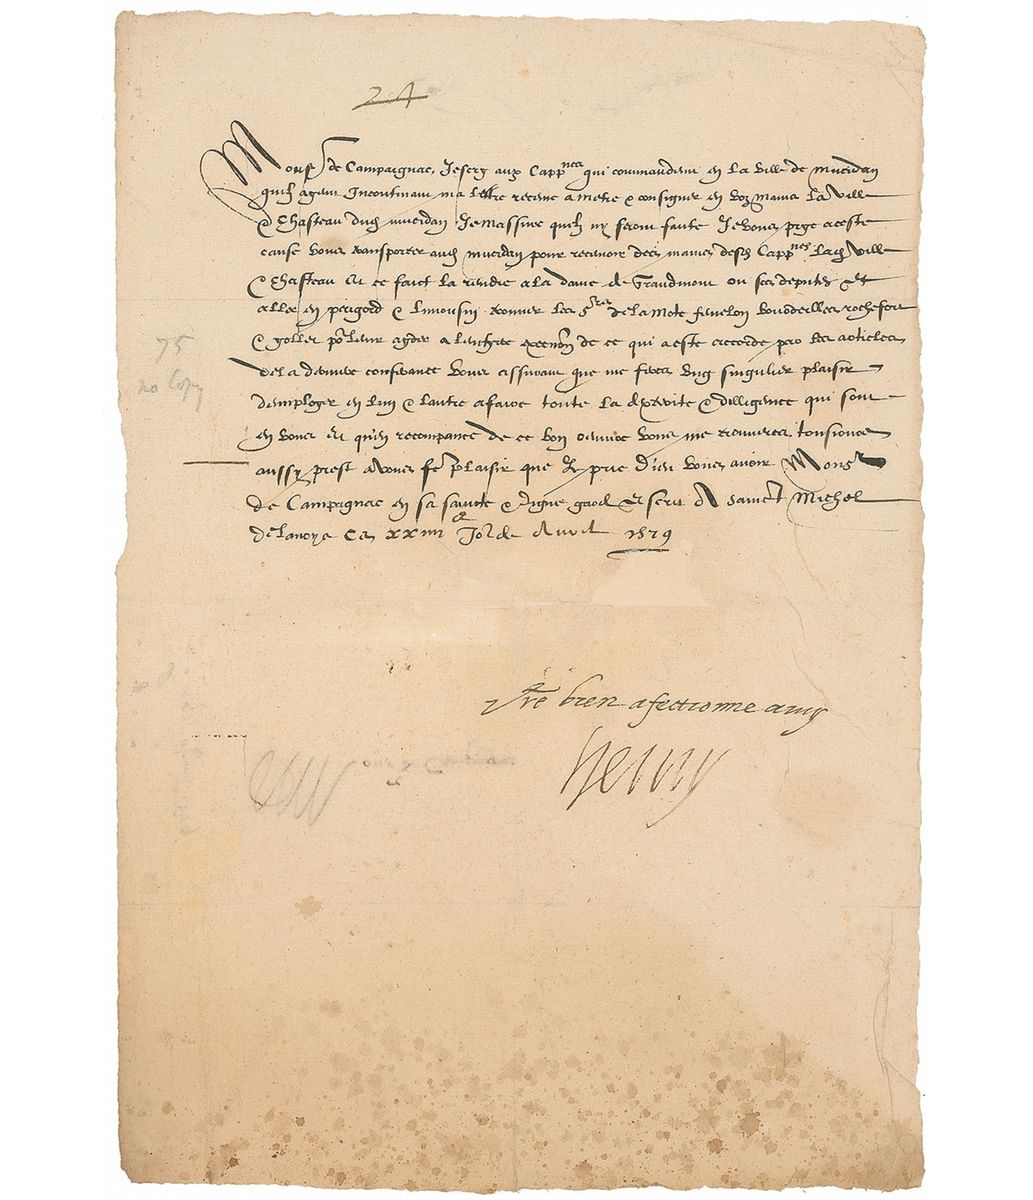 24
Monsr de Campaignac, Jescry aux Cappnes qui commandent en la ville de mucidan
quilz ayent Incontinant ma lettre receue a metre & consigner en voz mains la ville
& chasteau dudt mucidan Je massure quilz ny feront faute Je vous prye a ceste
cause vous transporter audt mucidan pour recevoir des mains desdt Cappnes ladt ville
& chasteau Et ce faict la rendre a la dame de Grandmont ou ses deputes Et
aller en perigord & limousin trouver les srs de la Mote fenelon bourdeilles rochefort
& pour leur ayder a lentiere execution de ce qui a este accorde par les articles
de la derniere conferance vous assurant que me feres ung singulier plaisir
demployer en lun & lautre afaire toute la dexterite & dilligence qui sont
en vous Et qu'en recompance de ce bon oeuvre vous me trouveres tousiours
aussy prest a vous fe plaisir que Je prie dieu vous avoir Monsr
de Campagnac en sa saincte & digne garde Escrit A Sainct Michel
de lanoys ce xxiiii Jor de Avril 1579
75
no Copy
Vre bien afectionne amy
Henry